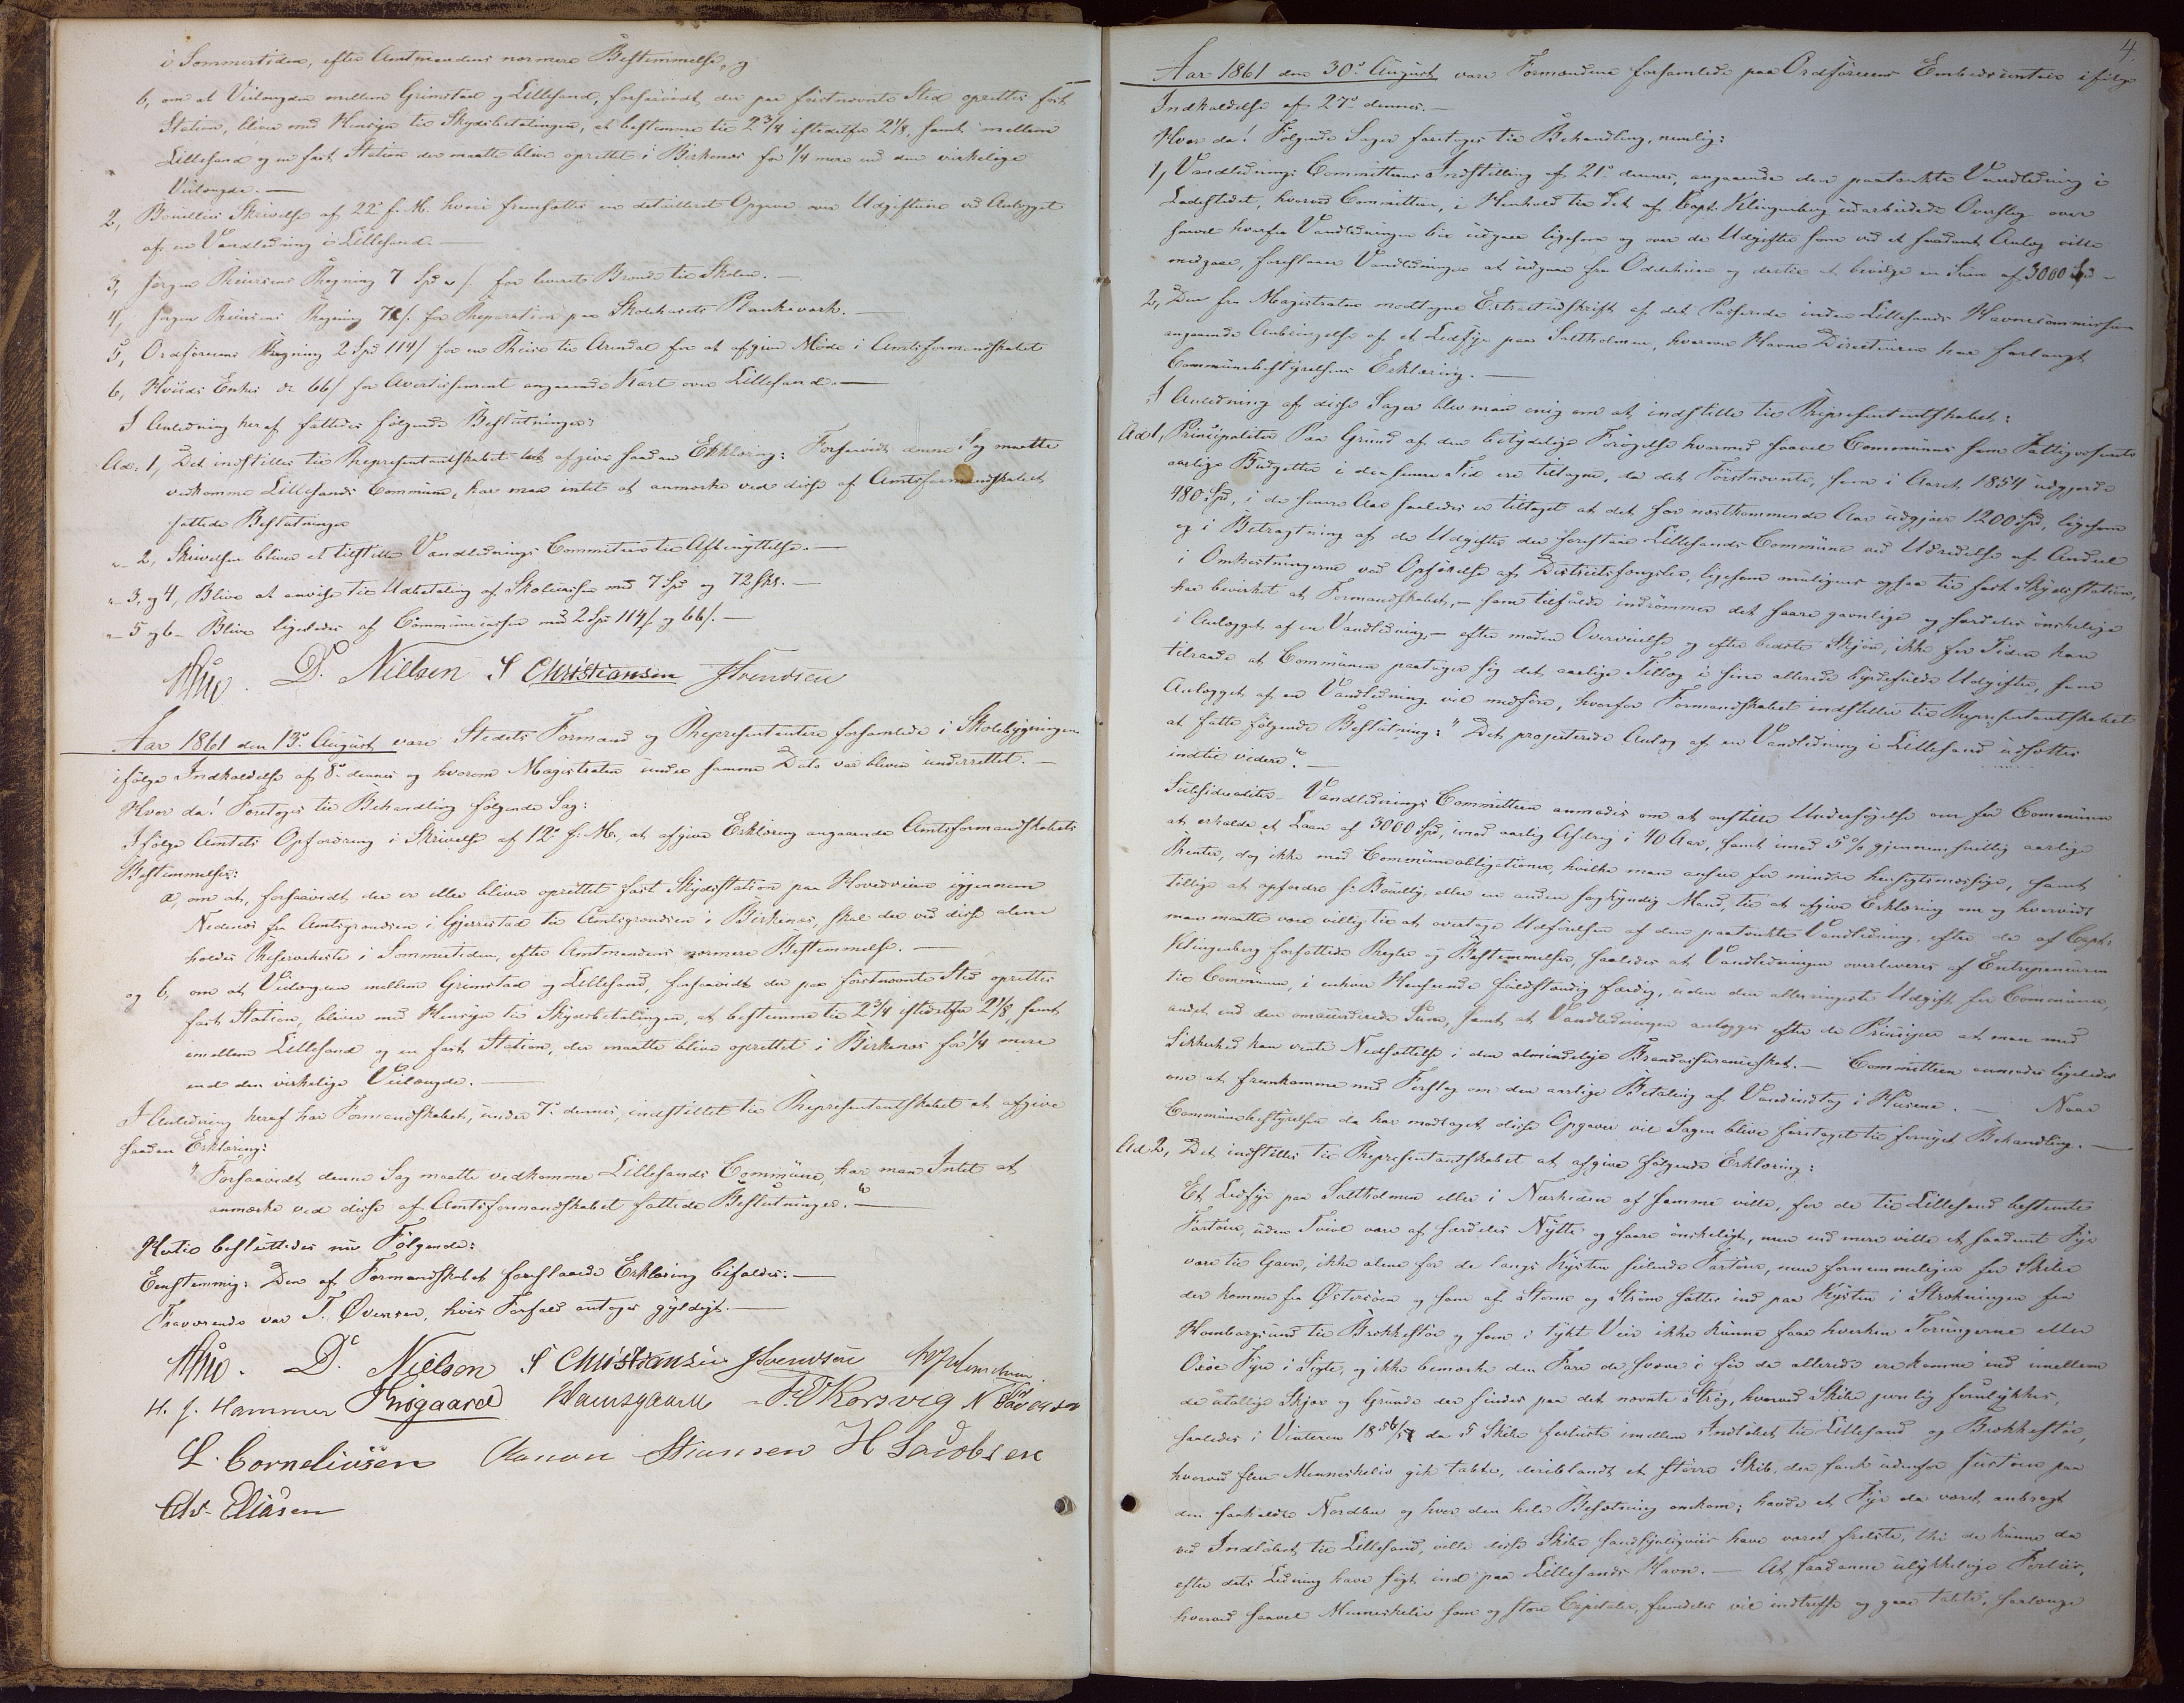 i Sommertiden, efter Amtmandens nærmere Bestemmelse, og
b, om at Veilængden mellem Grimstad og Lillesand, forsaavidt der paa førstnævnte Sted oprettes fast
Station, bliver med Hensyn til Skydsbetalingen, at bestemme til 2 3/4 istedetfor 2 1/8, samt mellem
Lillesand og en fast Station der maatte blive oprettet i Birkenæs for 1/4 mere end den virkelige
Veilængde. —
2, Skrivelse af 22de f. M. hvori fremsættes en detailleret Opgave over Udgifterne ved Anlægget
af en Vandledning i Lillesand. —
3, Jørgen Reiersens Regning 7 Spd for leveret Brænde til Skolen. —
4, Jørgen Reiersens Regning 72 /. for Reparation paa Skolehusets Plankeværk. —
5, Ordførerens Regning 2 Spd 114 / for en Reise til Arendal for at afgive Møde i Amtsformandskabet
6, Enkes 66 / for Avertissement angaaende Kart over Lillesand. —
I Anledning heraf fattedes følgende Beslutninger:
Ad. 1, Det indstilles til Repræsentantskabet at afgive saadan Erklæring: Forsaavidt denne Sag maatte
vedkomme Lillesands Commune, har man intet at anmærke ved disse af Amtsformandskabet
fattede Beslutninger
"— 2, Skrivelsen bliver at tilstille Vandlednings Committeen til Afbenyttelse. —
"— 3, og 4, Blive at anvise til Udbetaling af Skolecassen med 7 Spd og 72 Sks. —
"— 5 og 6 — Blive ligeledes af Communecassen med 2 Spd 114 /. og 66 /. —
D. Nielsen S Christiansen JSvendsen
Aar 1861 den 13de August vare Stedets Formænd og Repræsentantere forsamlede i Skolebygningen
ifølge Indkaldelse af 8de dennes og hvorom Magistraten under samme Dato var bleven underrettet. —
Hvor da! Foretoges til Behandling følgende Sag:
Ifølge Amtets Opfordring i Skrivelse af 12te f. M., at afgive Erklæring angaaende Amtsformandskabets
Bestemmelser:
a, om at, forsaavidt der er eller bliver oprettet fast Skydsstation paa Hovedveien igjennem
Nedenæs fra Amtsgrændsen i Gjerrestad til Amtsgrændsen i Birkenæs, skal der ved disse alene
holdes Reserveheste i Sommertiden, efter Amtmandens nærmere Bestemmelse. —
og b, om at Veilængden mellem Grimstad og Lillesand, forsaavidt der paa førstnævnte Sted oprettes
fast Station, bliver med Hensyn til Skydsbetalingen, at bestemme til 2 3/4 istedetfor 2 1/8, samt
imellem Lillesand og en fast Station, der maatte blive oprettet i Birkenæs for 1/4 mere
end den virkelige Veilængde. —
I Anledning heraf har Formandskabet, under 7de dennes, indstillet til Repræsentantskabet at afgive
saadan Erklæring:
"Forsaavidt denne Sag maatte vedkomme Lillesands Commune, har man Intet at
anmærke ved disse af Amtsformandskabet fattede Beslutninger." —
Hertil besluttedes nu Følgende:
Eenstemmig: Den af Formandskabet foreslaaede Erklæring bifaldes. —
Fraværende var T. Øvensen, hvis Forfald antages gyldigt. —
D. Nielsen S Christiansen JSvendsen
H. J. Hammer Knøgaard F Korsvig N
L. Corneliussen Aanon Stiansen H Jacobsen
Chr. Eliasen
4.
Aar 1861 den 30te August vare Formændene forsamlede paa Ordførerens Embedscontoir ifølge
Indkaldelse af 27de dennes. —
Hvor da! Følgende Sager foretoges til Behandling, nemlig:
1, Vandlednings Committeens Indstilling af 21de dennes, angaaende den paatænkte Vandledning i
Ladestedet, hvorved Committeen, i Henhold til det af Capt. Klingenberg udarbeidede Overslag over
saavel hvorfra Vandledningen bør udgaae ligesom og over de Udgifter som ved et saadant Anlæg ville
medgaae, foreslaaer Vandledningen at udgaae fra og dertil at bevilge en Sum af 3000 Spd —
2, Den fra Magistraten modtagne Extractudskrift af det Passerede inden Lillesands Havnecommission
angaaende Anbringelse af et Ledfyr paa Saltholmen, hvorom Havne Directeuren har forlangt
Communebestyrelsens Erklæring. —
I Anledning af disse Sager blev man enig om at indstille til Repræsentantskabet:
Ad 1, Principaliter Paa Grund af den betydelige Forøgelse hvormed saavel Communens som Fattigvæsenets
aarlige Budgetter i den senere Tid ere tiltagne, da det Førstnævnte, som i Aaret 1854 udgjorde
480 Spd, i de senere Aar saaledes er tiltaget at det for næstkommende Aar udgjør 1200 Spd, ligesom
og i Betragtning af de Udgifter der forestaae Lillesands Commune ved Udredelse af Andeel
i Omkostningerne ved Opførelse af Districtsfængsler, ligesom muligens ogsaa til fast Skydsstation,
har bevirket at Formandskabet, — som tilfulde indrømmer det saare gavnlige og særdeles ønskelige
i Anlægget af en Vandledning, — efter moden Overveielse og efter bedste Skjøn, ikke for Tiden kan
tilraade at Communen paatager sig det aarlige Tillæg i sine allerede byrdefulde Udgifter, som
Anlægget af en Vandledning vil medføre, hvorfor Formandskabet indstiller til Repræsentantskabet
at fatte følgende Beslutning: "Det projecterede Anlæg af en Vandledning i Lillesand udsættes
indtil videre". —
Subsidialiter — Vandlednings Committeen anmodes om at anstille Undersøgelse om for Communen
at erholde et Laan af 3000 Spd, imod aarlig Afdrag i 40 Aar, samt imod 5 % gjennemsnitlig aarlige
Renter, dog ikke mod Communeobligationer, hvilke man anseer for mindre hensigtsmæssige, samt
tillige at opfordre Hr. eller en anden sagkyndig Mand, til at afgive Erklæring om og hvorvidt
man maatte være villig til at overtage Udførelsen af den paatænkte Vandledning, efter de af Capt.
Klingenberg forfattede Regler og Bestemmelser, saaledes at Vandledningen overleveres af Entrepreneuren
til Communen, i enhver Henseende fuldstændig færdig, uden den allerringeste Udgift for Communen,
andet end den omaccorderede Sum, samt at Vandledningen anlægges efter de Principer at man med
Sikkerhed kan vente Nedsættelse i den almindelige Brandassuranceskat. — Committeen anmodes ligeledes
om at fremkomme med Forslag om den aarlige Betaling af Vandindtag i Husene. — Naar
Communebestyrelsen da har modtaget disse Opgaver vil Sagen blive foretaget til fornyet Behandling. —
Ad 2, Det indstilles til Repræsentantskabet at afgive følgende Erklæring:
Et Ledfyr paa Saltholmen eller i Nærheden af samme ville, for de til Lillesand bestemte
Fartøier, uden Tvivl være af særdeles Nytte og saare ønskeligt, men end mere ville et saadant Fyr
være til Gavn, ikke alene for de langs Kysten seilende Fartøier, men fornemmeligen for Skibe
der komme fra Østersøen og som af Storme og Strøm sættes ind paa Kysten i Strækningen fra
Homborgsund til Brækkestø og som i tykt Veir ikke kunne faae hverken Torungerne eller
Oxøe Fyr i Sigte, og ikke bemærke den Fare de svæve i før de allerede ere komne ind imellem
de utallige Skjær og Grunde der findes paa det nævnte Strøg, hvorved Skibe jevnlig forulykkes,
saaledes i Vinteren 1856/57 da 5 Skibe forliste imellem Indløbet til Lillesand og Brækkestø,
hvorved flere Menneskeliv gik tabte, deriblandt et større Skib, der sank udenfor Justøen paa
den saakaldte Nordbue og hvor den hele Besætning omkom; havde et Fyr da været anbragt
ved Indløbet til Lillesand, ville disse Skibe sandsynligviis have været frelste, thi de kunne da
efter dets Ledning have søgt ind paa Lillesands Havn. — At saadanne ulykkelige Forliis,
hvorved saavel Menneskeliv som og store Capitaler, fremdeles vil indtræffe og gaae tabte, saalænge